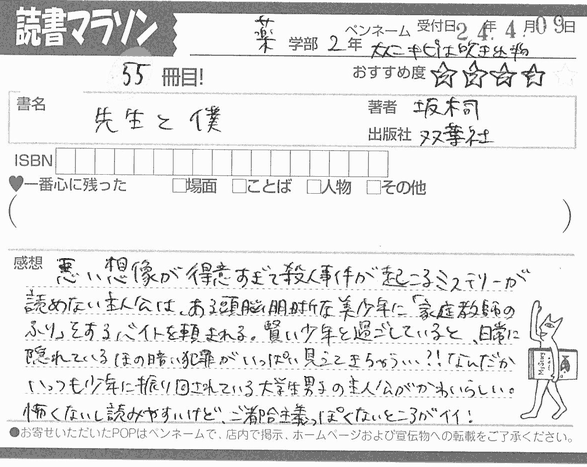 読書マラソン
薬 学部 2年 ペンネーム 受付日 24年4月09日
55 冊目! おすすめ度 ☆☆☆☆☆
書名 先生と僕 著者 坂木司
出版社 双葉社
ISBN
♥一番心に残った □場面 □ことば □人物 □その他
( )
感想 悪い想像が得意すぎて殺人事件が起こるミステリーが
読めない主人公は、ある頭脳明晰な美少年に「家庭教師の
ふり」をするバイトを頼まれる。賢い少年と過ごしていると、日常に
隠れているほの暗い犯罪がいっぱい見えてきちゃうぃ?!なんだか
いっつも少年に振り回されている大学生男子の主人公がかわいらしい。
怖くないし読みやすいけど、ご都合主義っぽくないところがイイ!
●お寄せいただいたPOPはペンネームで、店内で掲示、ホームページおよび宣伝物への転載をご了承ください。